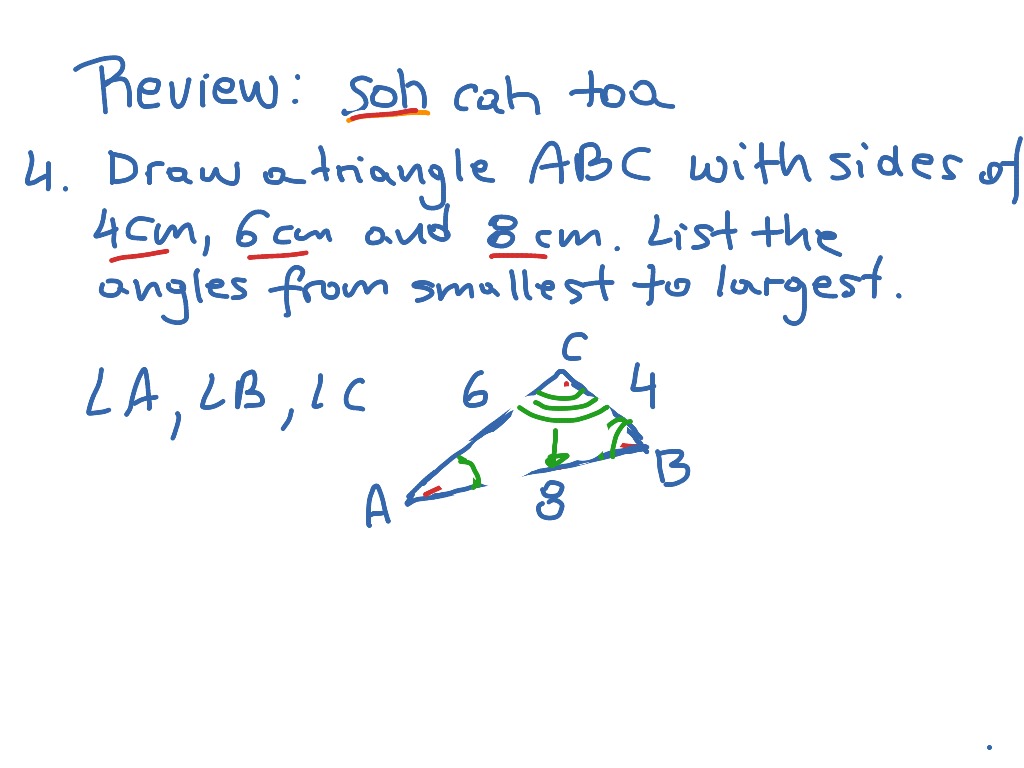 Review: soh cah toa
4. Draw a triangle ABC with sides of
4cm, 6cm and 8cm. List the
angles from smallest to largest.
∠A, ∠B, ∠C
C
6 4
B
A 8